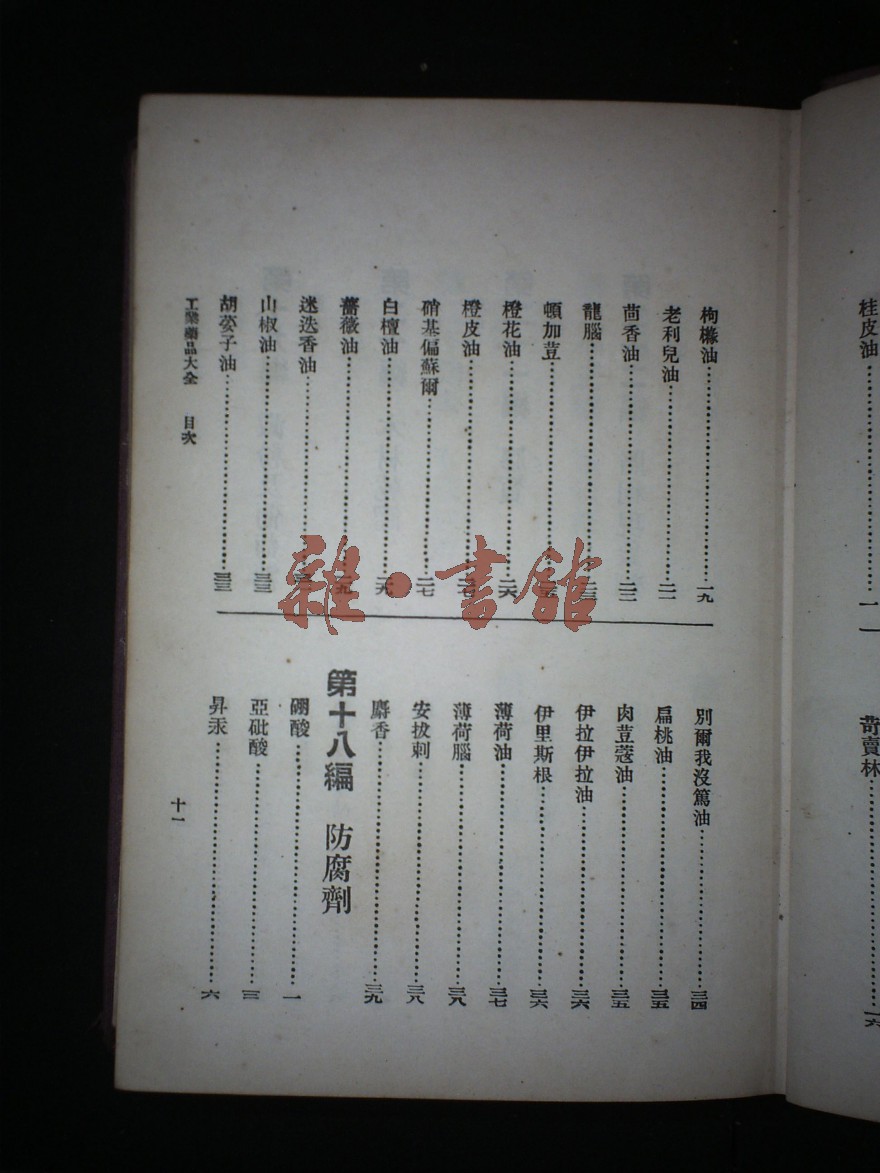 桂皮油……一一
賣林……一六
枸櫞油……一九
老利兒油……二一
茴香油……二二
龍腦……二三
頓加荳……
橙花油……二六
橙皮油……二七
硝基偏蘇爾……二七
白檀油……二九
薔薇油……二九
迷迭香油……
山椒油……三三
胡荽子油……三三
別爾我沒篤油……三四
扁桃油……三五
肉荳蔻油……三五
伊拉伊拉油……三六
伊里斯根……三六
薄荷油……三七
薄荷腦……三八
安拔剌……三八
麝香……三九
第十八編 防腐劑
硼酸……一
亞砒酸……三
昇汞……六
工業藥品大全 目次
十一
雜·書館